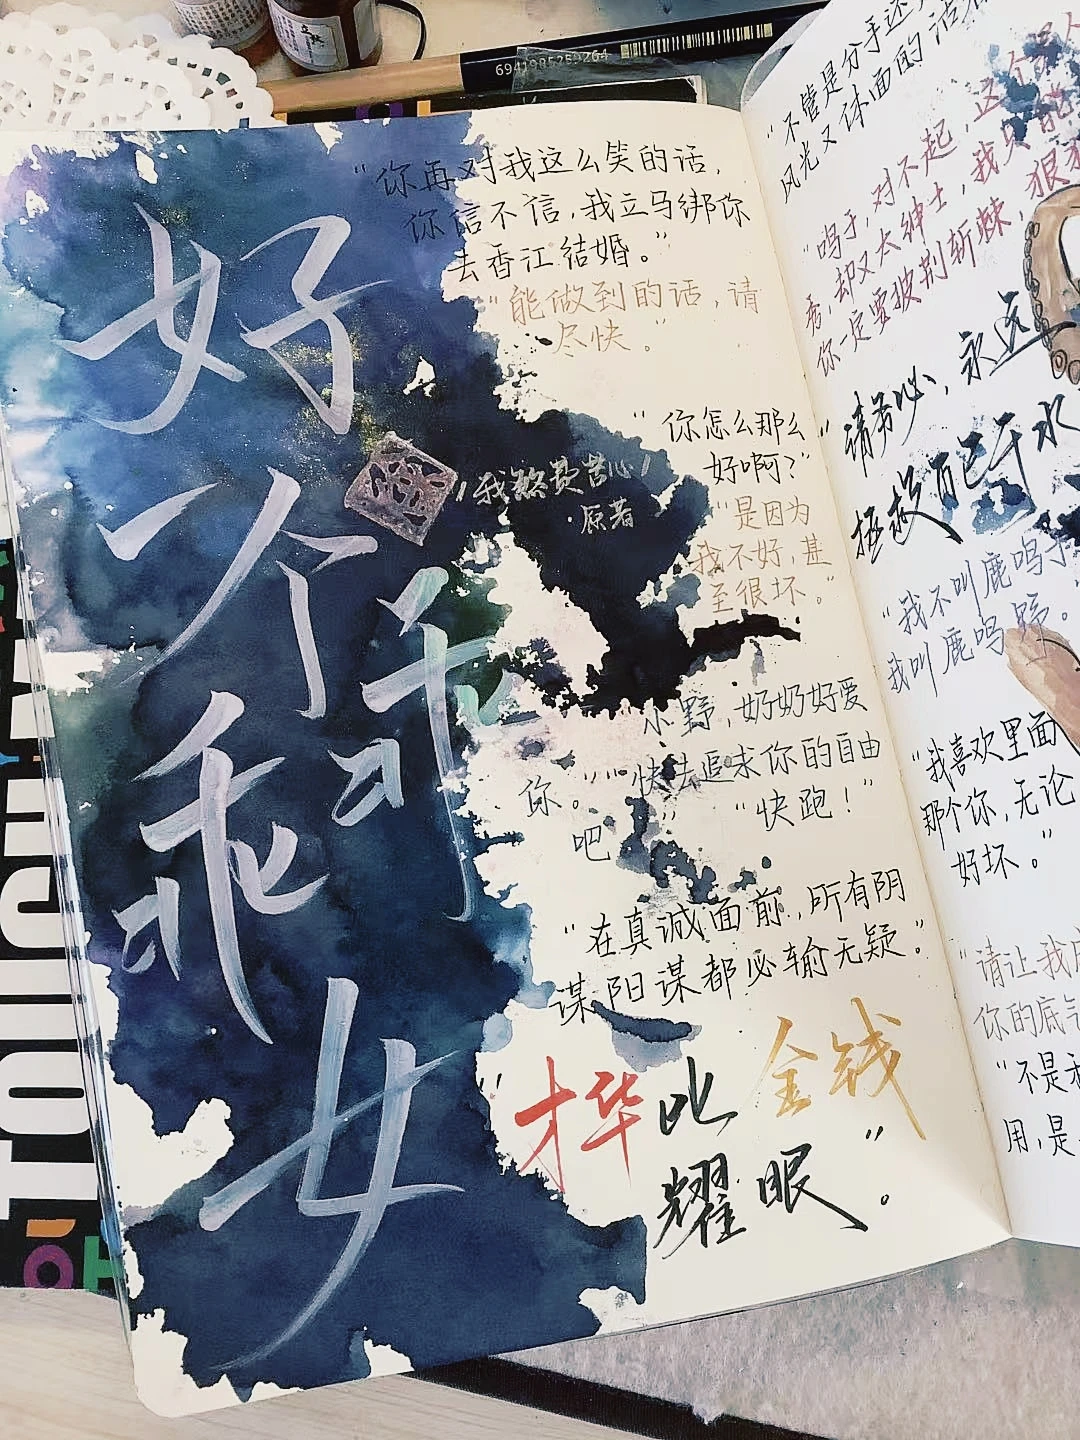 6941985259264
好
一个
乖
乖
女
"我煞费苦心"
原著
"你再对我这么笑的话，
你信不信，我立马绑你
去香江结婚。"
"能做到的话，请
尽快。"
"你怎么那么
好啊？"
"是因为
我不好，甚
至很坏。"
"小野，奶奶好爱
你。""快去追求你的自由
吧"
"快跑！"
"在真诚面前，所有阴
谋阳谋都必输无疑。"
"才华比金钱
耀眼"。
"不管是分手还
风光又体面的
"鸣于，对不起，这个
秀，却又太绅士，我只能
你一定要披荆斩棘，狠
"请务必，永远
拯救自己于水
"我不叫鹿鸣于
我叫鹿鸣野。"
"我喜欢里面
那个你，无论
好坏。"
"请让我成
你的底气
"不是我
用，是
TOUCH